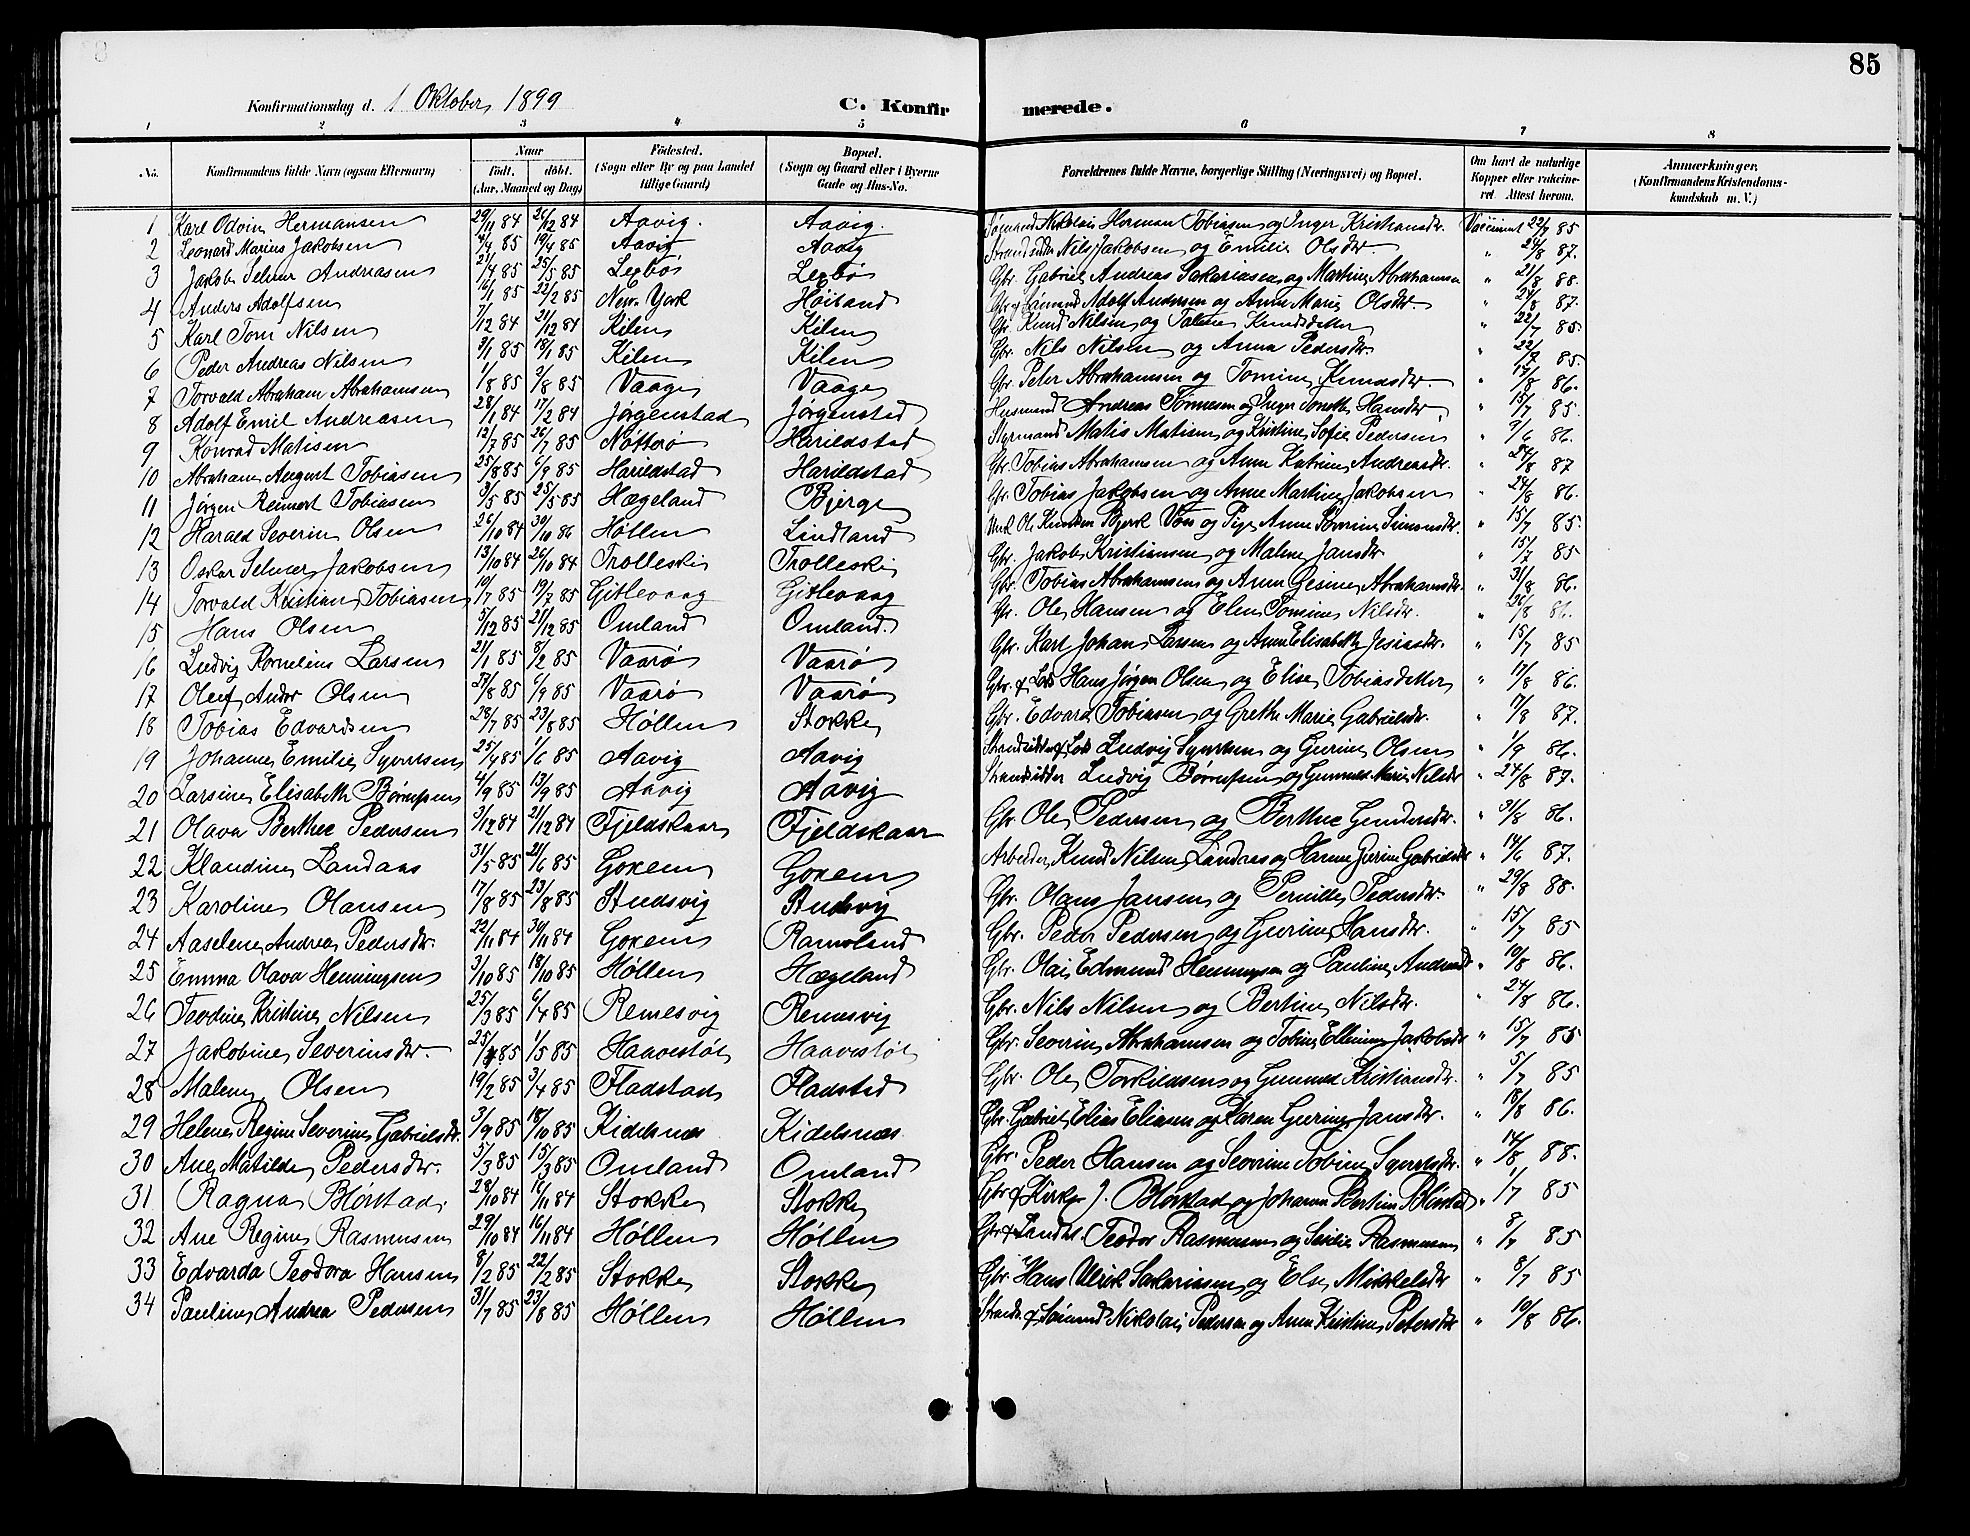 85
Konfirmationsdag d. 1 Oktober 1899 C. Konfirmerede.
1 2 3 4 5 6 7 8
No. Konfirmandens fulde Navn (ogsaa Efternavn) Naar født. døbt. (Aar, Maaned og Dag) Fødested. (Sogn eller By og paa Landet tillige Gaard) Bopæl. (Sogn og Gaard eller i Byerne Gade og Hus-No. Forældrenes fulde Navne, borgerlige Stilling (Næringsvei) og Bopæl. Om havt de naturlige Kopper eller vakcineret. Attest herom. Anmærkninger. (Konfirmandens Kristendomskundskab m. V.)
1 Karl Odvin Hermansen 29/11 84 26/12 84 Aavig. Aavig. Sømand Nikolai Herman Tobiassen og Inger Kristiansdr. Vaccineret 22/7 85
2 Leonard Marius Jakobsen 2/4 85 19/4 85 Aavig Aavig Strandsidder Nils Jakobsen og Emilie Olsdr. " 24/8 87.
3 Jakob Selmer Andreasen 21/4 85 25/5 85 Lexbø Lexbø Gbr. Gabriel Andreas Sakariasen og Martine Abrahamsen " 21/8 88.
4 Anders Adolfsen 16/1 85 22/2 85 New York Høiland Gbr. & Sømand Adolf Andersen og Anne Marie Olsdr. " 24/8 87.
5 Karl Tom Nilsen 7/12 84 21/12 84 Kilen Kilen Gbr. Knud Nilsen og Talene Knudsdatter " 22/7 85.
6 Peder Andreas Nilsen 3/1 85 18/1 85 Kilen Kilen Gbr. Nils Nilsen og Anna Pedersdr. " 22/7 85.
7 Torvald Abraham Abrahamsen 1/8 85 2/8 85 Vaage Vaage Gbr. Peter Abrahamsen og Tomine Knudsdr. " 13/8 86.
8 Adolf Emil Andreasen 28/1 84 17/2 84 Jørgenstad Jørgenstad Husmand Andreas Tønnesen og Inger Tonette Hansdr " 15/7 85.
9 Konrad Matisen 12/7 85 26/7 85 Nøtterø Harildstad Styrmand Matis Matisen og Kristine Sofie Pedersen " 9/6 86.
10 Abraham August Tobiasen 25/8 85 6/9 85 Harildstad Harildstad Gbr. Tobias Abrahamsen og Anne Katrine Andreasdr. " 24/8 87
11 Jørgen Reinert Tobiasen 3/5 85 25/5 85 Hægeland Bjerge Gbr. Tobias Jakobsen og Anne Martine Jakobsen " 24/8 86.
12 Harald Severin Olsen 26/10 84 30/10 86 Høllen Lindland Unk. Ole Knudsen Bjerk Vos og Pige Anne Tomine Simonsdr. " 15/7 85.
13 Oskar Selmer Jakobsen 13/10 84 26/10 84 Trolleski Trolleski Gbr. Jakob Kristiansen og Malene Jansdr " 15/7 85
14 Torvald Kristian Tobiasen 10/7 85 19/7 85 Gitlevaag Gitlevaag Gbr. Tobias Abrahamsen og Anne Gesine Abrahamsdr. " 31/8 86.
15 Hans Olsen 5/12 85 21/12 85 Omland Omland. Gbr. Ole Hansen og Elen Tomine Nilsdr. " 26/8 86.
16 Ludvig Kornelius Larsen 21/1 85 8/2 85 Vaarø Vaarø Gbr. Karl Johan Larsen og Anne Elisabeth Jesiasdr. " 15/7 85
17 Oluf Andor Olsen 27/8 85 6/9 85 Vaarø Vaarø Gbr. & Lods Hans Jørgen Olsen og Elise Tobiasdatter " 17/8 86.
18 Tobias Edvardsen 28/7 85 23/8 85 Høllen Stokke Gbr. Edvard Tobiasen og Grethe Marie Gabrielsdr. " 7/8 87.
19 Johanne Emilie Syvertsen 25/4 85 1/6 85 Aavig Aavig Strandsidder & Lods Ludvig Syvertsen og Gurine Olsen " 1/9 86.
20 Larsine Elisabeth Børresen 4/9 85 13/9 85 Aavig Aavig Strandsidder Ludvig Børresen og Gunnuld Marie Nilsdr " 24/8 87.
21 Olava Berthee Pedersen 3/12 84 21/12 84 Fjeldskaar Fjeldskaar Gbr. Ole Pedersen og Berthee Gundersdr. " 31/8 86.
22 Klaudine Landaas 31/5 85 21/6 85 Goxem Goxem Arbeider Knud Nilsen Landaas og Hanne Gurine Gabrielsdr " 14/6 87.
23 Karoline Olausen 17/8 85 23/8 85 Studsvig Studsvig Gbr. Olaus Jansen og Pernille Pedersdr. " 29/8 88.
24 Aaselene Andrea Pedersdr. 22/11 84 30/11 84 Goxem Ramsland Gbr. Peder Pedersen og Gurine Hansdr. " 15/7 85
25 Emma Olava Henningsen 3/10 85 18/10 85 Høllen Hægeland Gbr. Olai Edmund Henningsen og Pauline Andreasdr " 10/8 86.
26 Teodine Kristine Nilsen 25/3 85 6/4 85 Remesvig Remesvig Gbr. Nils Nilsen og Bertine Nilsdr. " 24/8 86.
27 Jakobine Severinsdr. 25/4 85 1/5 85 Haavestøl Haavestøl Gbr. Severin Abrahamsen og Tobine Elleninne Jakobsdr " 15/7 85
28 Malene Olsen 19/2 85 3/4 85 Fladstad Fladstad Gbr. Ole Torkildsen og Gunnuld Kristiansdr. " 5/7 85
29 Helene Regine Severine Gabrielsdr. 3/9 85 18/10 85 Kidelsnæs Kidelsnæs Gbr. Gabriel Elias Eliasen og Karen Gurine Jansdr. " 18/8 86.
30 Ane Matilde Pedersdr. 5/3 85 15/3 85 Omland Omland Gbr. Peder Hansen og Severine Tobine Syvertsdr. " 14/8 88.
31 Ragna Blørstad. 28/10 84 16/11 84 Stokke Stokke Gbr. & Kirkes. J. Blørstad og Johanne Bertine Blørstad " 1/7 85
32 Ane Regine Rasmusen 29/10 84 16/11 84 Høllen Høllen Gbr. & Landh. Teodor Rasmusen og Sesilie Rasmusen " 8/7 85
33 Edvarda Teodora Hansen 8/2 85 22/2 85 Stokke Stokke Gbr Hans Ulrik Sakariasen og Else Mikkelsdr " 8/7 85
34 Pauline Andrea Pedersen 31/7 85 23/8 85 Høllen Høllen Strands. & Sømand Nikolai Pedersen og Anne Kristine Petersdr " 10/8 86.